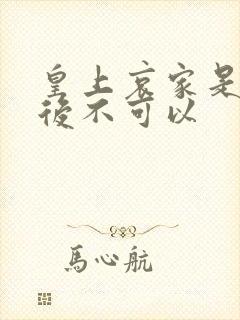 皇上哀家是
後不可以
馬心航